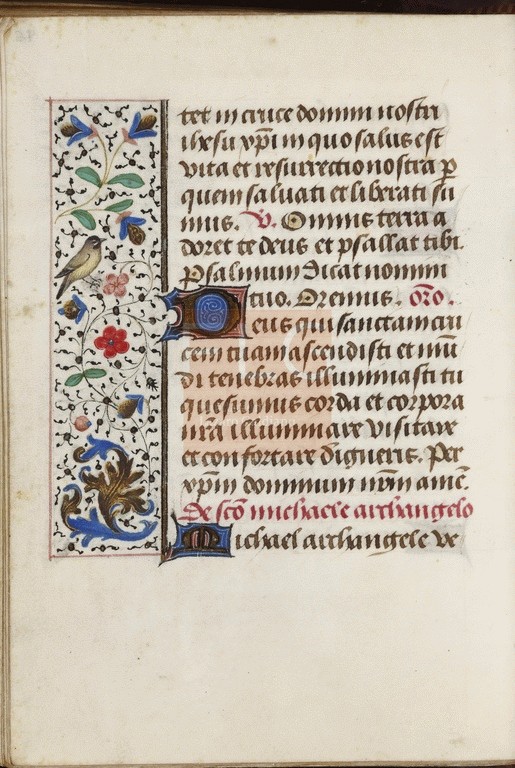 tet in cruce domini nostri
ihesu xpi in quo salus est
vita et resurrectio nostra p
quem saluati et liberati su
mus. V. Omnis terra a
doret te deus et psallat tibi.
Psalmum dicat nomini
tuo. Oremus. Oro.
Deus qui sanctam cru
cem tuam ascendisti et mu
di tenebras illuminasti tu
quesumus corda et corpora
nra illuminare visitare
et confortare digneris. Per
xpm dominum nrm ame.
De sco michaele archangelo
Michael archangele ve